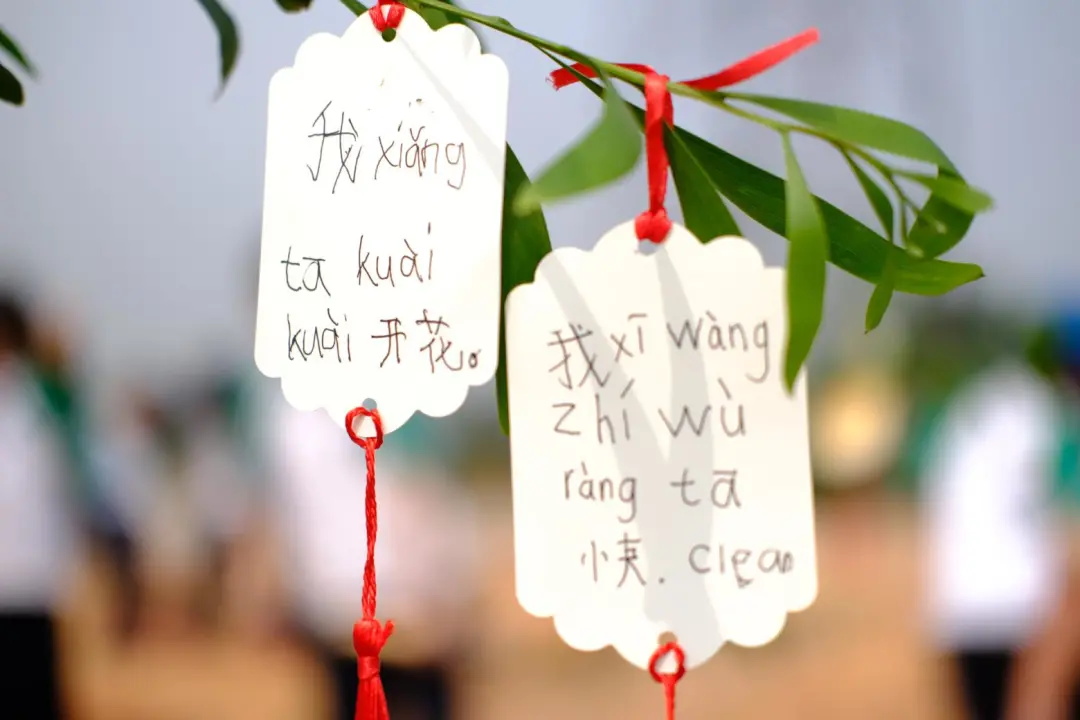 我 xiǎng
tā kuài
kuài 开花。
我 xī wàng
zhí wù
ràng tā
快. clean